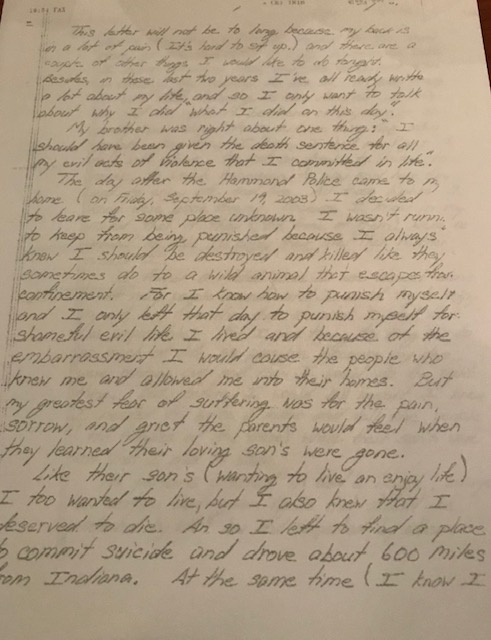 This letter will not be to long, because my back is
in a lot of pain (It's hard to sit up.) and there are a
couple of other things I would like to do tonight.
Besides, in these last two years I've all ready write
a lot about my life, and so I only want to talk
about why I did "what I did on this day".
My brother was right about one thing: "I
should have been given the death sentence for all
my evil acts of violence that I committed in life".
The day after the Hammond Police came to my
home (on Friday, September 19, 2003) I decided
to leave for some place unknown. I wasn't runni
to keep from being punished because I always
know I should be destroyed and killed like they
sometimes do to a wild animal that escapes from
confinement. For I know how to punish myself
and I only left that day to punish myself for
shameful evil life I lived and because of the
embarrassment I would cause the people who
knew me and allowed me into their homes. But
my greatest fear of suffering was for the pain,
sorrow, and grief the parents would feel when
they learned their loving son's were gone.
Like their son's (wanting to live an enjoy life)
I too wanted to live, but I also knew that I
deserved to die. An so I left to find a place
to commit suicide and drove about 600 miles
from Indiana. At the same time (I know I